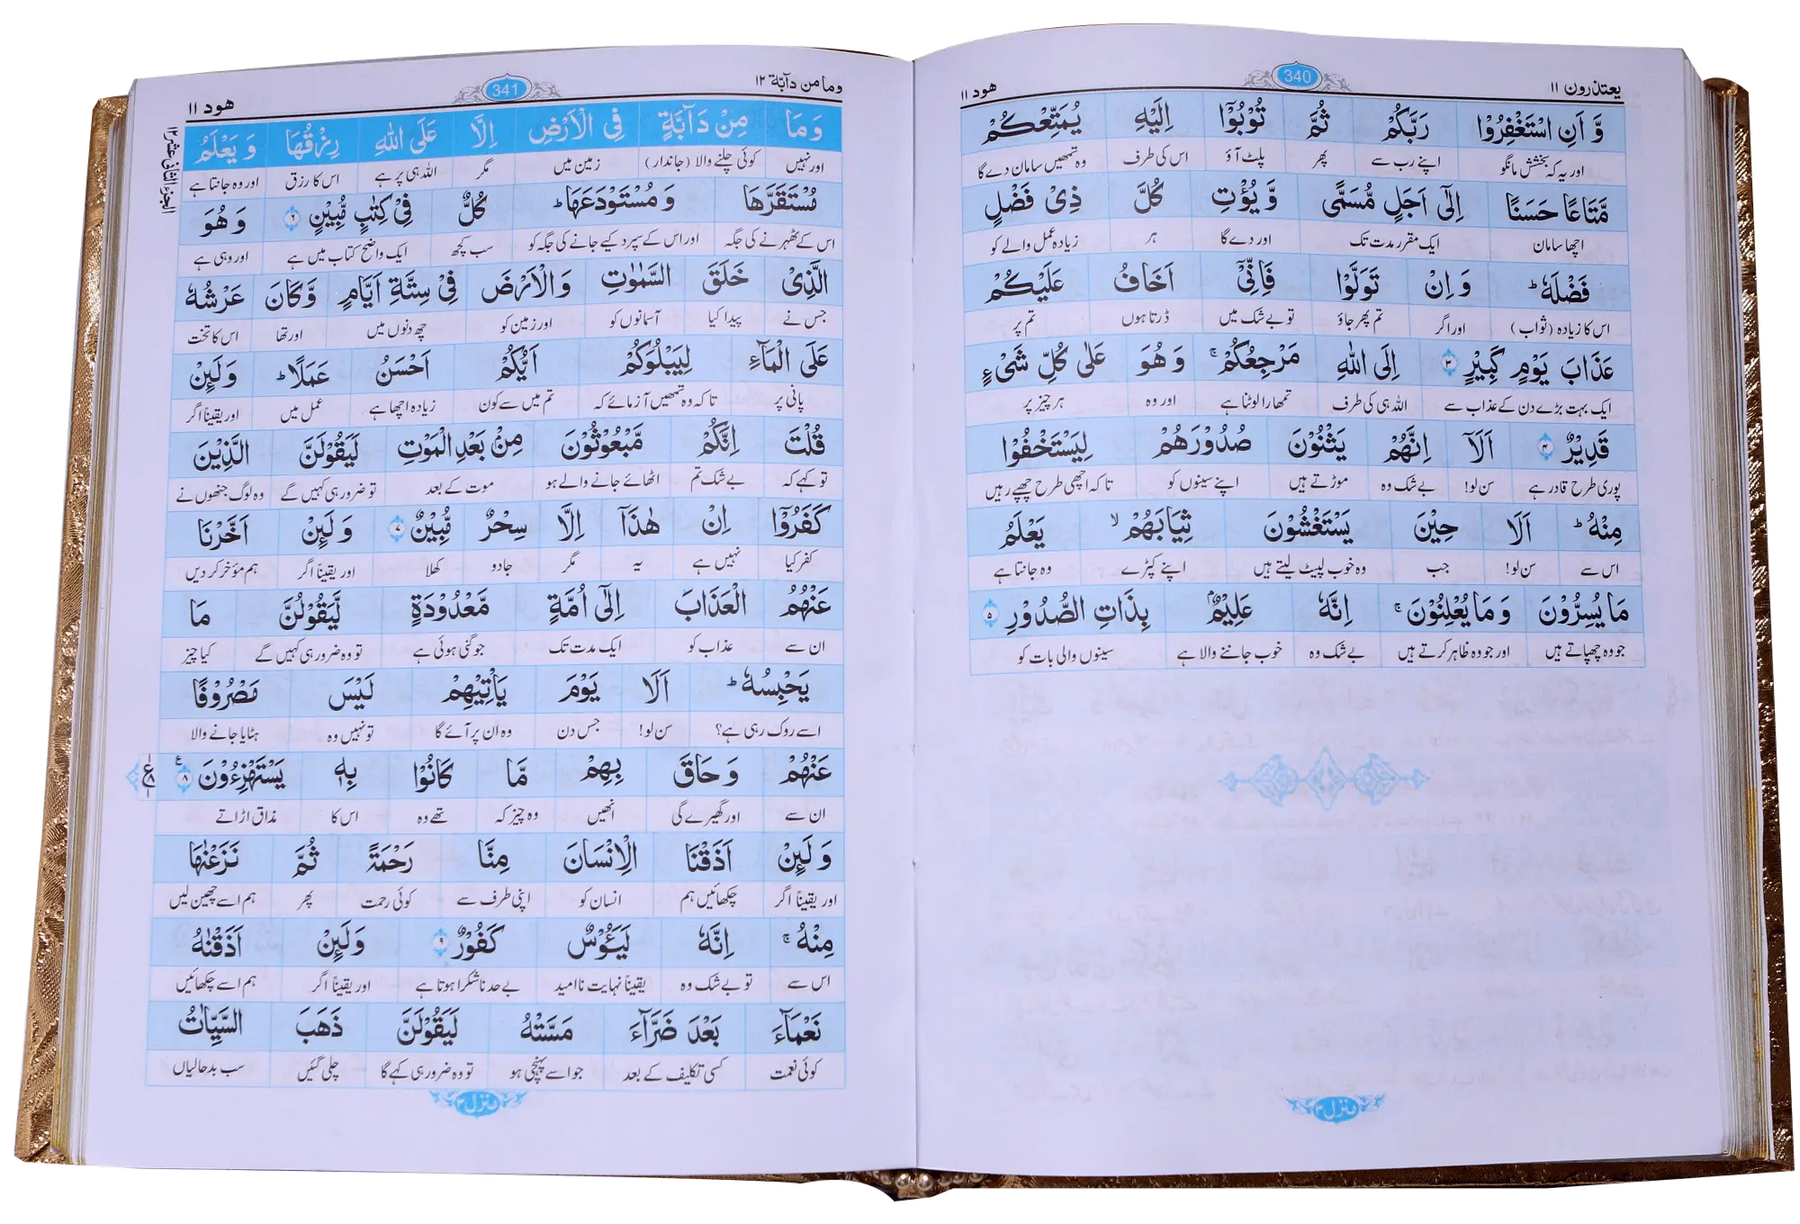 یعتذرون ۱۱ 340 ھود ۱۱
وَّ اَنِ اسْتَغْفِرُوْا رَبَّكُمْ ثُمَّ تُوْبُوْۤا اِلَیْهِ یُمَتِّعْكُمْ
اور یہ کہ بخشش مانگو اپنے رب سے پھر پلٹ آؤ اس کی طرف وہ تمھیں سامان دے گا
مَّتَاعًا حَسَنًا اِلٰۤی اَجَلٍ مُّسَمًّی وَّ یُؤْتِ كُلَّ ذِیْ فَضْلٍ
اچھا سامان ایک مقرر مدت تک اور دے گا ہر زیادہ عمل والے کو
فَضْلَهٗ ؕ وَ اِنْ تَوَلَّوْا فَاِنِّیْۤ اَخَافُ عَلَیْكُمْ
اس کا زیادہ (ثواب) اور اگر تم پھر جاؤ تو بے شک میں ڈرتا ہوں تم پر
عَذَابَ یَوْمٍ كَبِیْرٍ ۳ اِلَی اللّٰهِ مَرْجِعُكُمْ ۚ وَ هُوَ عَلٰی كُلِّ شَیْءٍ
ایک بہت بڑے دن کے عذاب سے اللہ ہی کی طرف تمھارا لوٹنا ہے اور وہ ہر چیز پر
قَدِیْرٌ ۴ اَلَاۤ اِنَّهُمْ یَثْنُوْنَ صُدُوْرَهُمْ لِیَسْتَخْفُوْا
پوری طرح قادر ہے سن لو! بے شک وہ موڑتے ہیں اپنے سینوں کو تاکہ اچھی طرح چھپے رہیں
مِنْهُ ؕ اَلَا حِیْنَ یَسْتَغْشُوْنَ ثِیَابَهُمْ ۙ یَعْلَمُ
اس سے سن لو! جب وہ خوب لپیٹ لیتے ہیں اپنے کپڑے وہ جانتا ہے
مَا یُسِرُّوْنَ وَ مَا یُعْلِنُوْنَ ۚ اِنَّهٗ عَلِیْمٌۢ بِذَاتِ الصُّدُوْرِ ۵
جو وہ چھپاتے ہیں اور جو وہ ظاہر کرتے ہیں بے شک وہ خوب جاننے والا ہے سینوں والی بات کو
منزل ۳
وما من دآبّة ۱۲ 341 ھود ۱۱
الجزء الثانی عشر ۱۲
وَ مَا مِنْ دَآبَّةٍ فِی الْاَرْضِ اِلَّا عَلَی اللّٰهِ رِزْقُهَا وَ یَعْلَمُ
اور نہیں کوئی چلنے والا (جاندار) زمین میں مگر اللہ ہی پر ہے اس کا رزق اور وہ جانتا ہے
مُسْتَقَرَّهَا وَ مُسْتَوْدَعَهَا ؕ كُلٌّ فِیْ كِتٰبٍ مُّبِیْنٍ ۶ وَ هُوَ
اس کے ٹھہرنے کی جگہ اور اس کے سپرد کیے جانے کی جگہ کو سب کچھ ایک واضح کتاب میں ہے اور وہی ہے
الَّذِیْ خَلَقَ السَّمٰوٰتِ وَ الْاَرْضَ فِیْ سِتَّةِ اَیَّامٍ وَّ كَانَ عَرْشُهٗ
جس نے پیدا کیا آسمانوں کو اور زمین کو چھ دنوں میں اور تھا اس کا تخت
عَلَی الْمَآءِ لِیَبْلُوَكُمْ اَیُّكُمْ اَحْسَنُ عَمَلًا ؕ وَ لَئِنْ
پانی پر تاکہ وہ تمھیں آزمائے کہ تم میں سے کون زیادہ اچھا ہے عمل میں اور یقیناً اگر
قُلْتَ اِنَّكُمْ مَّبْعُوْثُوْنَ مِنْۢ بَعْدِ الْمَوْتِ لَیَقُوْلَنَّ الَّذِیْنَ
تو کہے کہ بے شک تم اٹھائے جانے والے ہو موت کے بعد تو ضرور ہی کہیں گے وہ لوگ جنھوں نے
كَفَرُوْۤا اِنْ هٰذَاۤ اِلَّا سِحْرٌ مُّبِیْنٌ ۷ وَ لَئِنْ اَخَّرْنَا
کفر کیا نہیں ہے یہ مگر جادو کھلا اور یقیناً اگر ہم مؤخر کر دیں
عَنْهُمُ الْعَذَابَ اِلٰۤی اُمَّةٍ مَّعْدُوْدَةٍ لَّیَقُوْلُنَّ مَا
ان سے عذاب کو ایک مدت تک جو گنی ہوئی ہے تو وہ ضرور ہی کہیں گے کیا چیز
یَحْبِسُهٗ ؕ اَلَا یَوْمَ یَاْتِیْهِمْ لَیْسَ مَصْرُوْفًا
اسے روک رہی ہے؟ سن لو! جس دن وہ ان پر آئے گا تو نہیں وہ ہٹایا جانے والا
عَنْهُمْ وَ حَاقَ بِهِمْ مَّا كَانُوْا بِهٖ یَسْتَهْزِءُوْنَ ۸ ع
ان سے اور گھیرے گی انھیں وہ چیز کہ تھے وہ اس کا مذاق اڑاتے
وَ لَئِنْ اَذَقْنَا الْاِنْسَانَ مِنَّا رَحْمَةً ثُمَّ نَزَعْنٰهَا
اور یقیناً اگر چکھائیں ہم انسان کو اپنی طرف سے کوئی رحمت پھر ہم اسے چھین لیں
مِنْهُ ۚ اِنَّهٗ لَیَـُٔوْسٌ كَفُوْرٌ ۹ وَ لَئِنْ اَذَقْنٰهُ
اس سے تو بے شک وہ یقیناً نہایت ناامید بے حد ناشکرا ہوتا ہے اور یقیناً اگر ہم اسے چکھائیں
نَعْمَآءَ بَعْدَ ضَرَّآءَ مَسَّتْهُ لَیَقُوْلَنَّ ذَهَبَ السَّیِّاٰتُ
کوئی نعمت کسی تکلیف کے بعد جو اسے پہنچی ہو تو وہ ضرور ہی کہے گا چلی گئیں سب بدحالیاں
منزل ۳